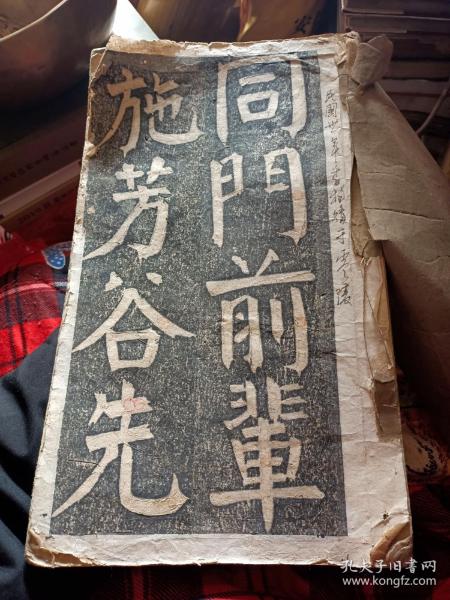 同門前輩
施芳谷先
民國
孔夫子旧书网
www.kongfz.com